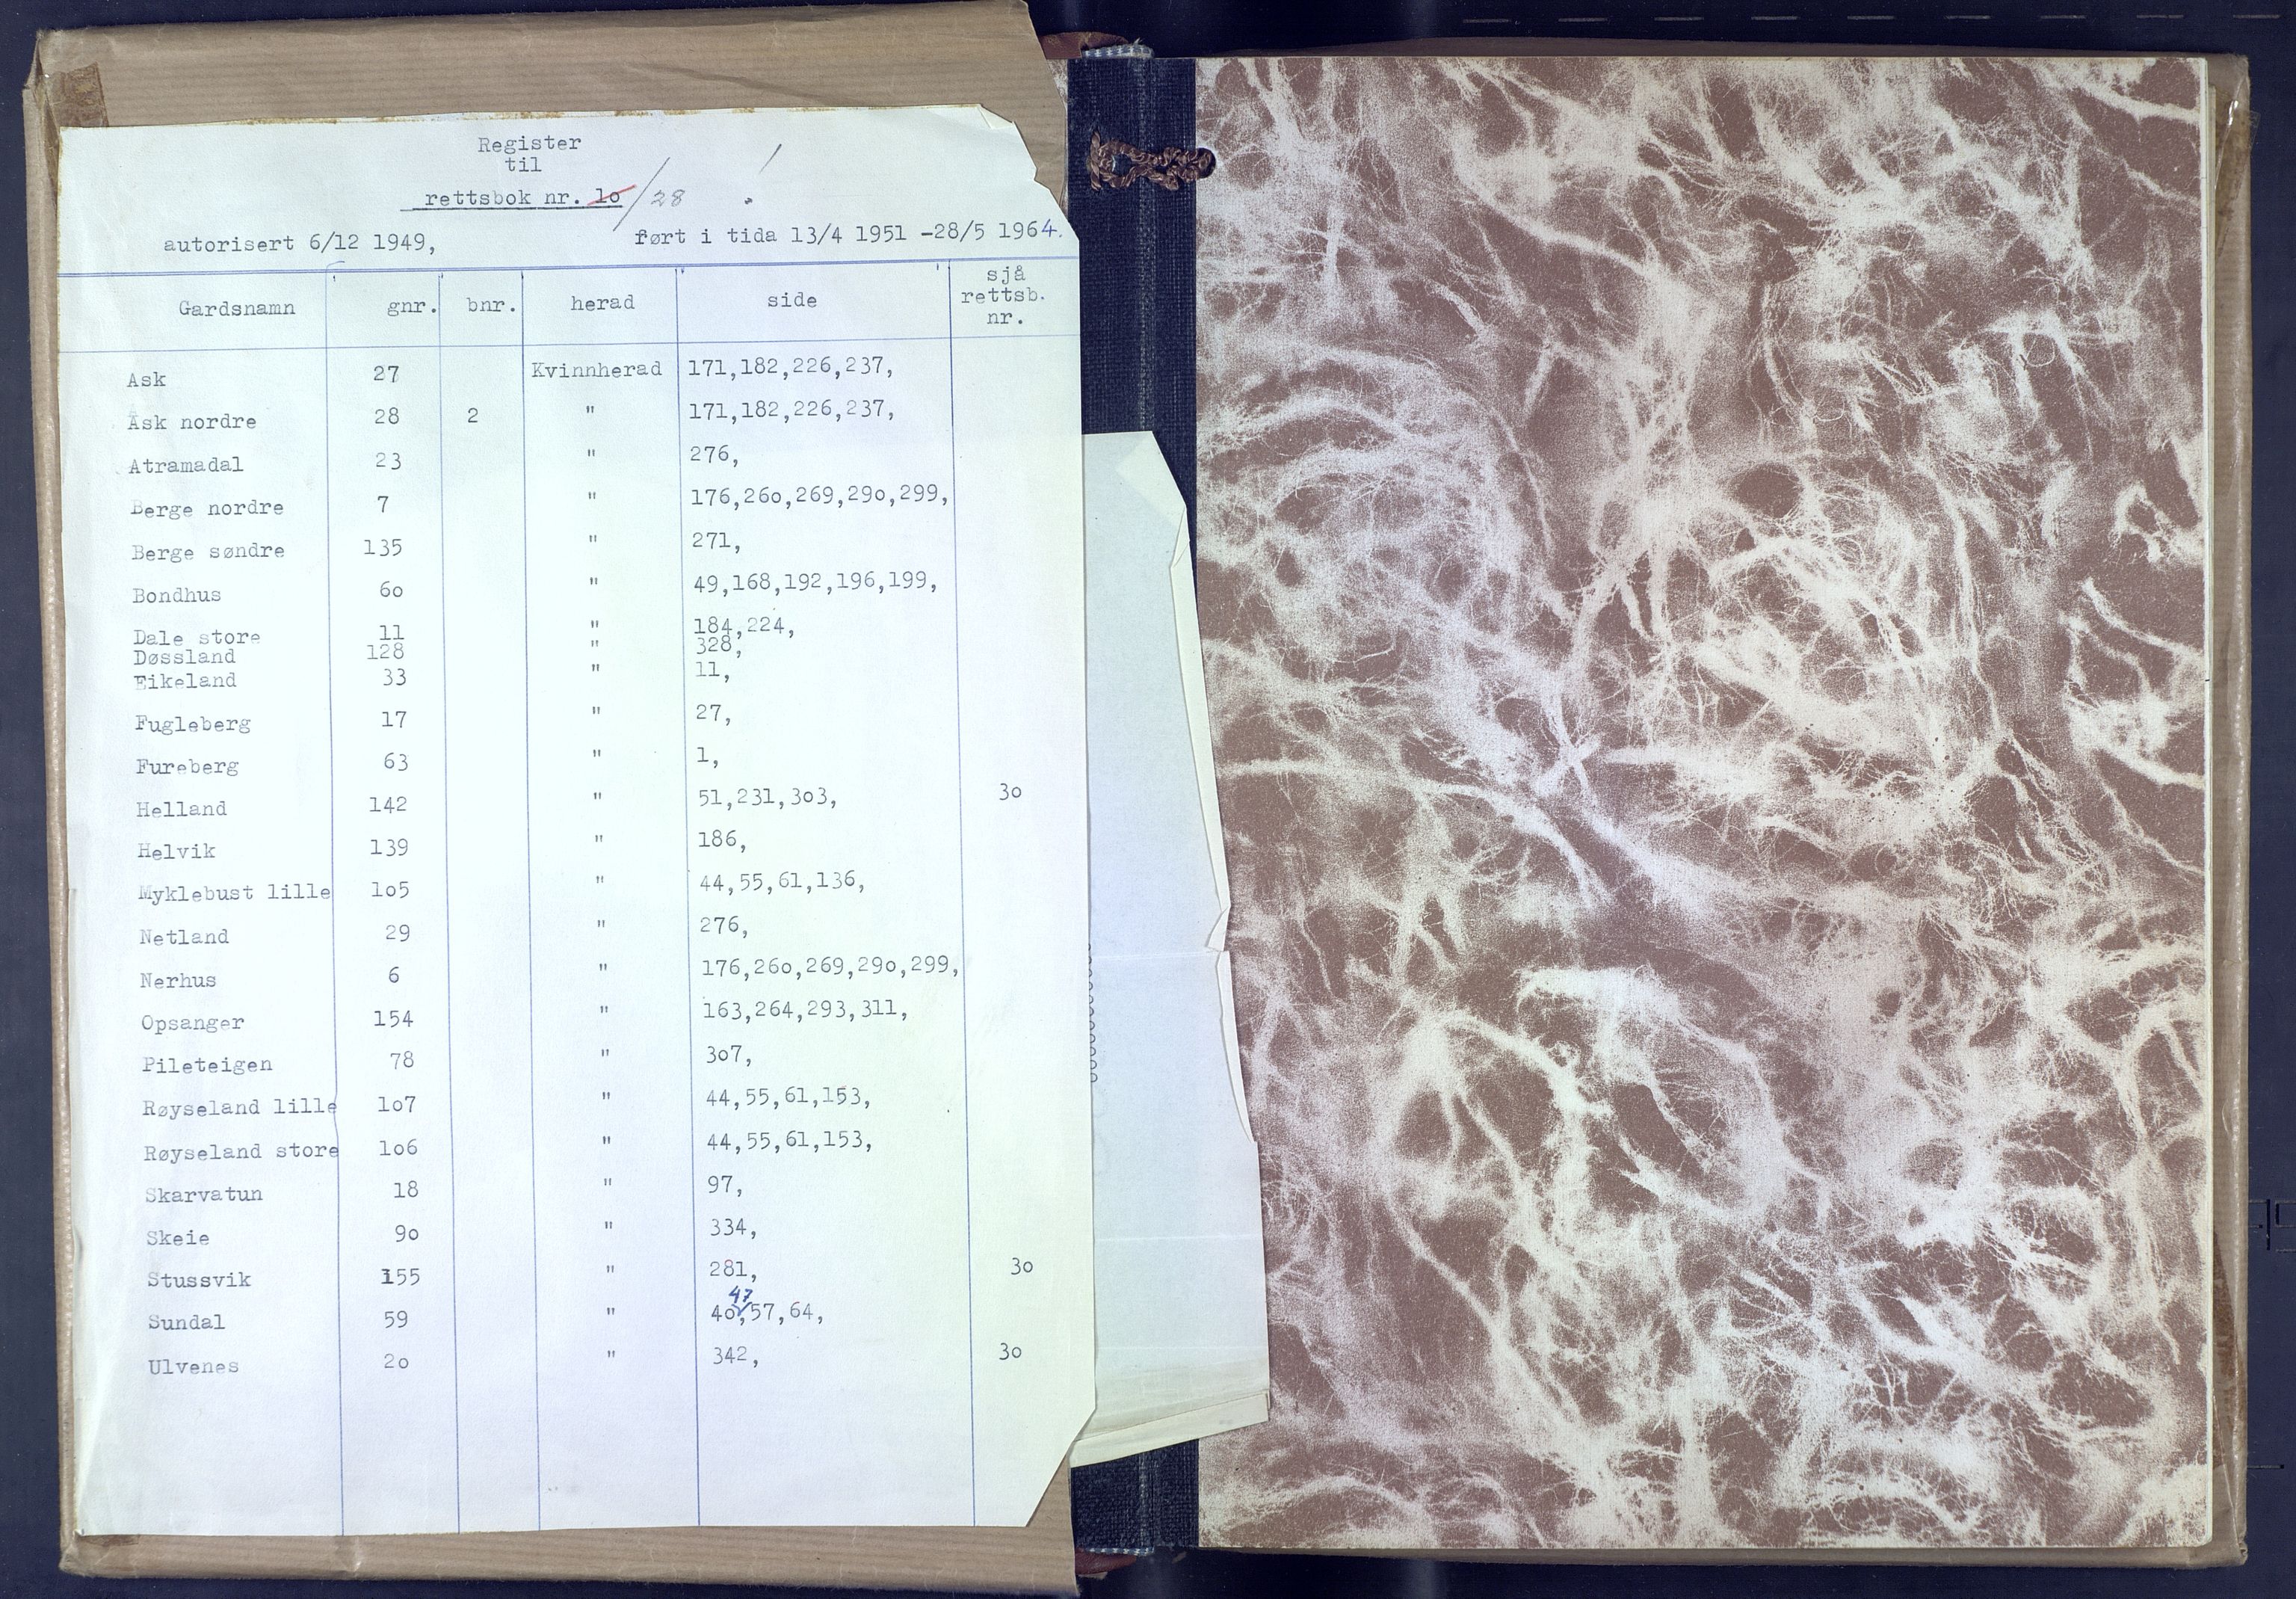 Register
til
rettsbok nr. 1o/28
autorisert 6/12 1949, ført i tida 13/4 1951 -28/5 1964.
Gardsnamn gnr. bnr. herad side sjå rettsb. nr.
Ask 27 Kvinnherad 171,182,226,237,
Ask nordre 28 2 " 171,182,226,237,
Atramadal 23 " 276,
Berge nordre 7 " 176,26o,269,29o,299,
Berge søndre 135 " 271,
Bondhus 6o " 49,168,192,196,199,
Dale store 11 " 184,224,
Døssland 128 " 328,
Eikeland 33 " 11,
Fugleberg 17 " 27,
Fureberg 63 " 1,
Helland 142 " 51,231,3o3, 3o
Helvik 139 " 186,
Myklebust lille 1o5 " 44,55,61,136,
Netland 29 " 276,
Nerhus 6 " 176,26o,269,29o,299,
Opsanger 154 " 163,264,293,311,
Pileteigen 78 " 3o7,
Røyseland lille 1o7 " 44,55,61,153,
Røyseland store 1o6 " 44,55,61,153,
Skarvatun 18 " 97,
Skeie 9o " 334,
Stussvik 155 " 281, 3o
Sundal 59 " 4o, 47 57,64,
Ulvenes 2o " 342, 3o